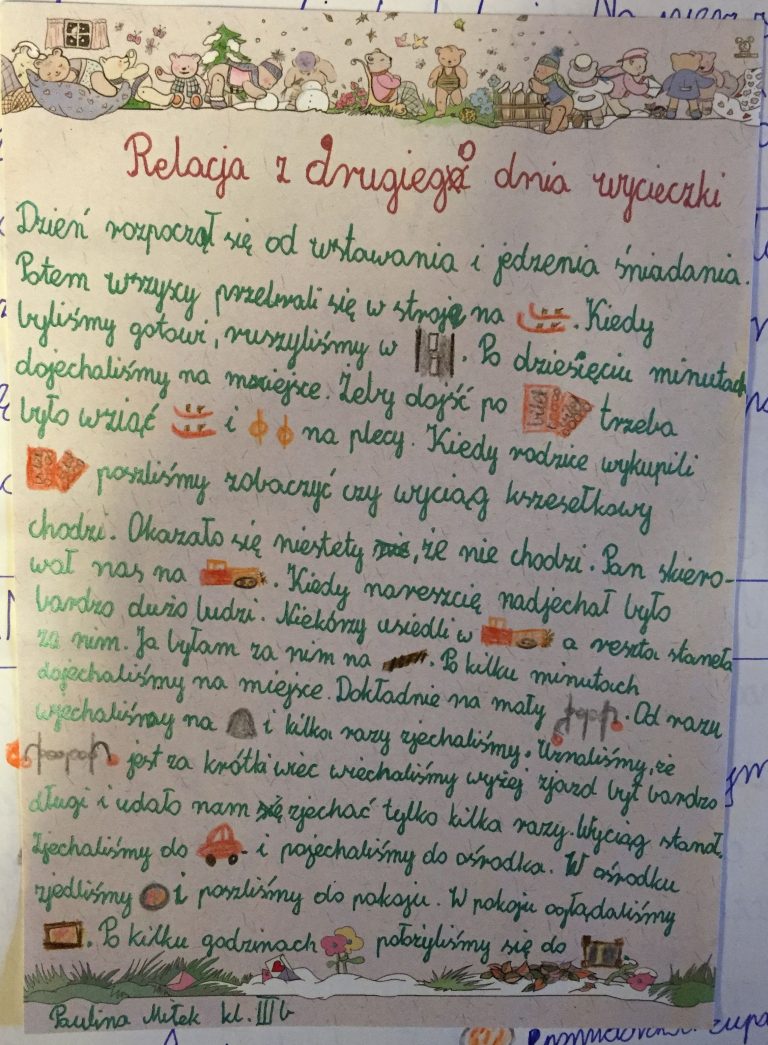 Relacja z drugiego dnia wycieczki
Dzień rozpoczął się od wstawania i jedzenia śniadania.
Potem wszyscy przebrali się w stroje na . Kiedy
byliśmy gotowi, ruszyliśmy w . Po dziesięciu minutach
dojechaliśmy na miejsce. Żeby dojść po trzeba
było wziąć i na plecy. Kiedy rodzice wykupili
poszliśmy zobaczyć czy wyciąg krzesełkowy
chodzi. Okazało się niestety, że nie chodzi. Pan skiero-
wał nas na . Kiedy nareszcię nadjechał było
bardzo dużo ludzi. Niekórzy usiedli w a reszta staneła
za nim. Ja byłam za nim na . Po kilku minutach
dojechaliśmy na miejsce. Dokładnie na mały . Od razu
wjechaliśmy na i kilka razy zjechaliśmy. Uznaliśmy, że
jest za krótki wiec wiechaliśmy wyżej zjazd był bardzo
długi i udało nam się zjechać tylko kilka razy. Wyciąg stanął.
Zjechaliśmy do i pojechaliśmy do ośrodka. W ośrodku
zjedliśmy i poszliśmy do pokoju. W pokoju oglądaliśmy
. Po kilku godzinach położyliśmy się do .
Paulina Miłek kl. III b